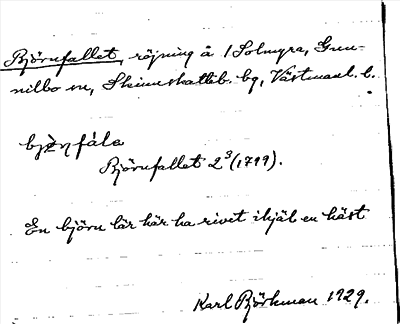 Björnfallet, röjning å 1 Solmyra, Gun-
nilbo sn, Skinnskatteb. bg, Västmanl. l.
Björnfallet 2³ (1799).
En björn lär här ha rivet ihjäl en häst
Karl Björkman 1929.